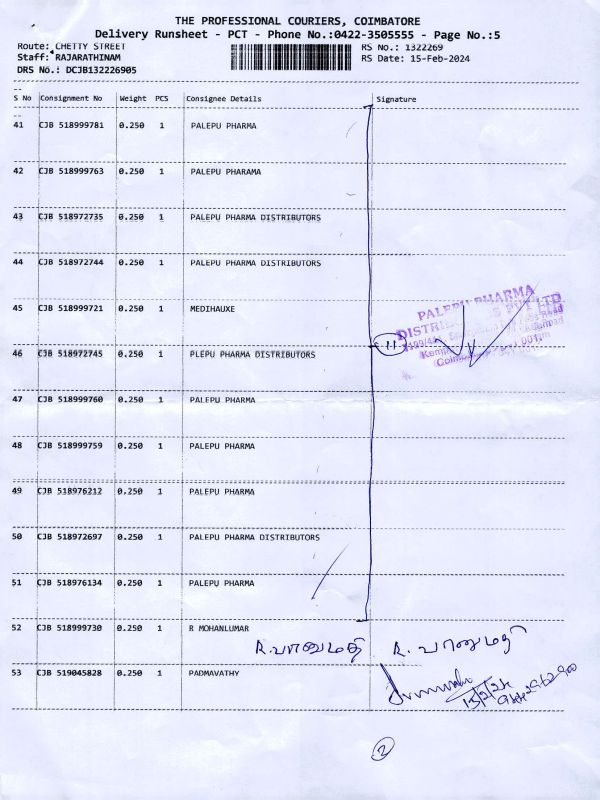 THE PROFESSIONAL COURIERS, COIMBATORE
Delivery Runsheet - PCT - Phone No.:0422-3505555 - Page No.:5
Route: CHETTY STREET RS No.: 1322269
Staff: RAJARATHINAM RS Date: 15-Feb-2024
DRS No.: DCJB132226905
S No Consignment No Weight PCS Consignee Details Signature
41 CJB 518999781 0.250 1 PALEPU PHARMA
42 CJB 518999763 0.250 1 PALEPU PHARAMA
43 CJB 518972735 0.250 1 PALEPU PHARMA DISTRIBUTORS
44 CJB 518972744 0.250 1 PALEPU PHARMA DISTRIBUTORS
PALEPU PHARMA
45 CJB 518999721 0.250 1 MEDIHAUXE
PVT LTD
11
46 CJB 518972745 0.250 1 PLEPU PHARMA DISTRIBUTORS
47 CJB 518999760 0.250 1 PALEPU PHARMA
48 CJB 518999759 0.250 1 PALEPU PHARMA
49 CJB 518976212 0.250 1 PALEPU PHARMA
50 CJB 518972697 0.250 1 PALEPU PHARMA DISTRIBUTORS
51 CJB 518976134 0.250 1 PALEPU PHARMA
52 CJB 518999730 0.250 1 R MOHANLUMAR
R. பானுமதி R. பானுமதி
53 CJB 519045828 0.250 1 PADMAVATHY
15/2/24
2